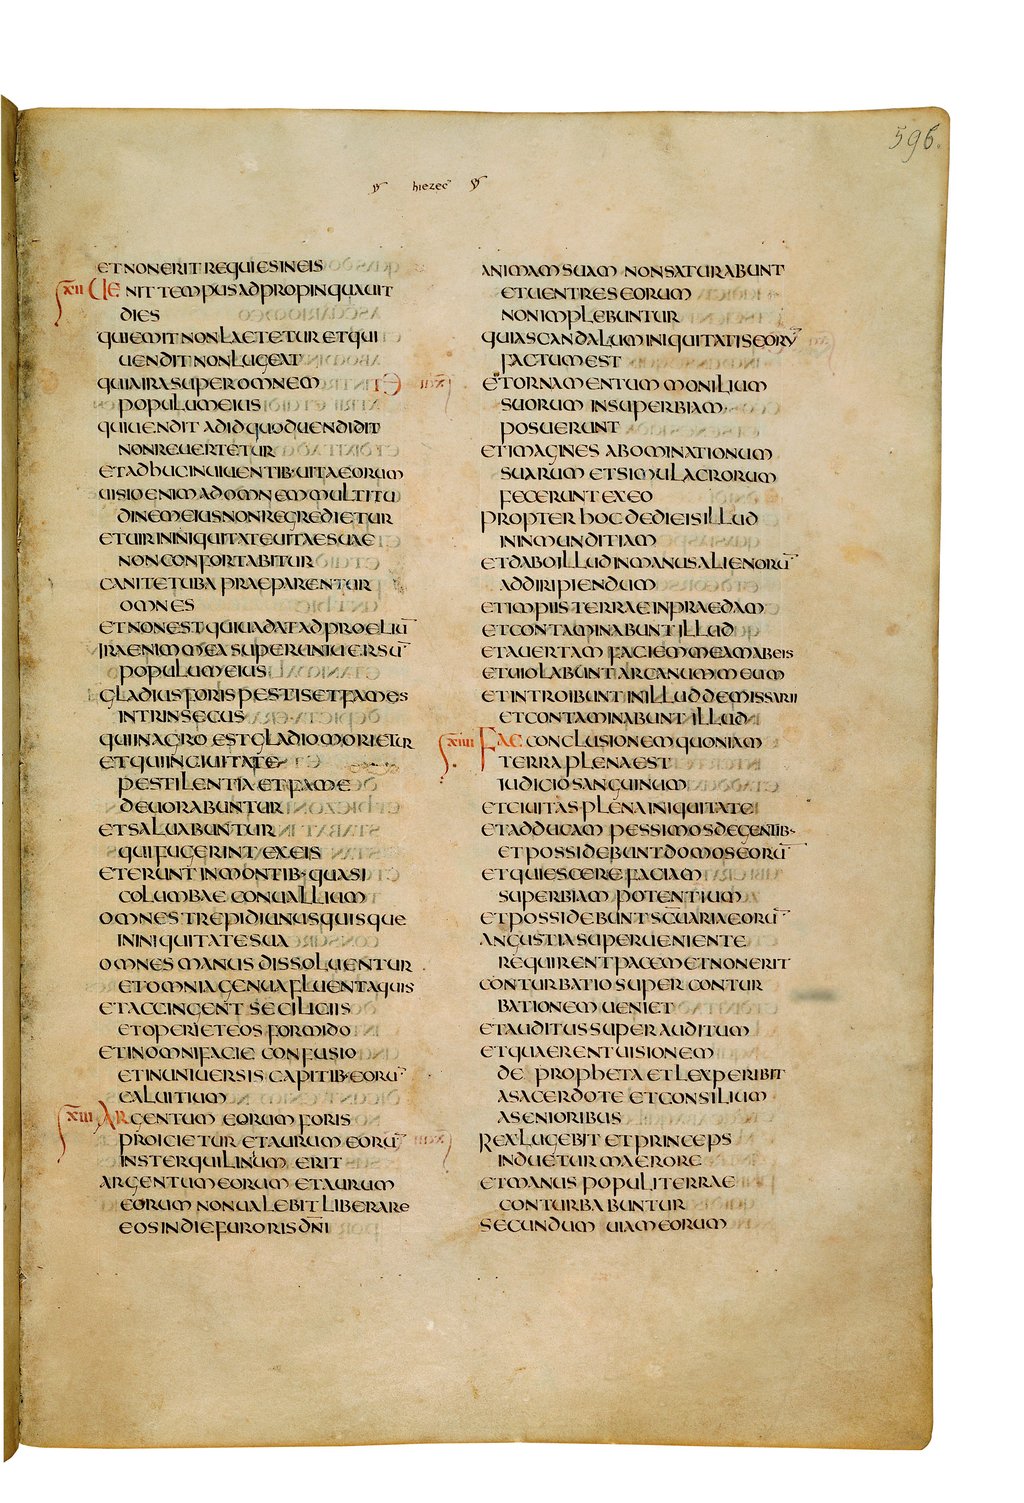 596.
hiezec
ET NON ERIT REQUIES IN EIS
XII UENIT TEMPUS ADPROPINQUAUIT
DIES
QUI EMIT NON LAETETUR ET QUI
UENDIT NON LUGEAT
QUIA IRA SUPER OMNEM
POPULUM EIUS
QUI UENDIT AD ID QUOD UENDIDIT
NON REUERTETUR
ET ADHUC IN UIUENTIB· UITA EORUM
UISIO ENIM AD OMNEM MULTITU
DINEM EIUS NON REGREDIETUR
ET UIR IN INIQUITATE UITAE SUAE
NON CONFORTABITUR
CANITE TUBA PRAEPARENTUR
OMNES
ET NON EST QUI UADAT AD PROELIU̅
IRA ENIM MEA SUPER UNIUERSU̅
POPULUM EIUS
GLADIUS FORIS PESTIS ET FAMES
INTRINSECUS
QUI IN AGRO EST GLADIO MORIETUR
ET QUI IN CIUITATE
PESTILENTIA ET FAME
DEUORABUNTUR
ET SALUABUNTUR
QUI FUGERINT EX EIS
ET ERUNT IN MONTIB· QUASI
COLUMBAE CONUALLIUM
OMNES TREPIDI UNUSQUISQUE
IN INIQUITATE SUA
OMNES MANUS DISSOLUENTUR
ET OMNIA GENUA FLUENT AQUIS
ET ACCINGENT SE CILICIIS
ET OPERIET EOS FORMIDO
ET IN OMNI FACIE CONFUSIO
ET IN UNIUERSIS CAPITIB· EORU̅
CALUITIUM
XIII ARGENTUM EORUM FORIS
PROICIETUR ET AURUM EORU̅
IN STERQUILINUM ERIT
ARGENTUM EORUM ET AURUM
EORUM NON UALEBIT LIBERARE
EOS IN DIE FURORIS DN̅I
ANIMAM SUAM NON SATURABUNT
ET UENTRES EORUM
NON IMPLEBUNTUR
QUIA SCANDALUM INIQUITATIS EORU̅
FACTUM EST
ET ORNAMENTUM MONILIUM
SUORUM IN SUPERBIAM
POSUERUNT
ET IMAGINES ABOMINATIONUM
SUARUM ET SIMULACRORUM
FECERUNT EX EO
PROPTER HOC DEDI EIS ILLUD
IN INMUNDITIAM
ET DABO ILLUD IN MANUS ALIENORU̅
AD DIRIPIENDUM
ET IMPIIS TERRAE IN PRAEDAM
ET CONTAMINABUNT ILLUD
ET AUERTAM FACIEM MEAM AB EIS
ET UIOLABUNT ARCANUM MEUM
ET INTROIBUNT IN ILLUD EMISSARII
ET CONTAMINABUNT ILLUD
XIIII FAC CONCLUSIONEM QUONIAM
TERRA PLENA EST
IUDICIO SANGUINUM
ET CIUITAS PLENA INIQUITATE
ET ADDUCAM PESSIMOS DE GENTIB·
ET POSSIDEBUNT DOMOS EORU̅
ET QUIESCERE FACIAM
SUPERBIAM POTENTIUM
ET POSSIDEBUNT SC̅UARIA EORU̅
ANGUSTIA SUPERUENIENTE
REQUIRENT PACEM ET NON ERIT
CONTURBATIO SUPER CONTUR
BATIONEM UENIET
ET AUDITUS SUPER AUDITUM
ET QUAERENT UISIONEM
DE PROPHETA ET LEX PERIBIT
A SACERDOTE ET CONSILIUM
A SENIORIBUS
REX LUGEBIT ET PRINCEPS
INDUETUR MAERORE
ET MANUS POPULI TERRAE
CONTURBABUNTUR
SECUNDUM UIAM EORUM